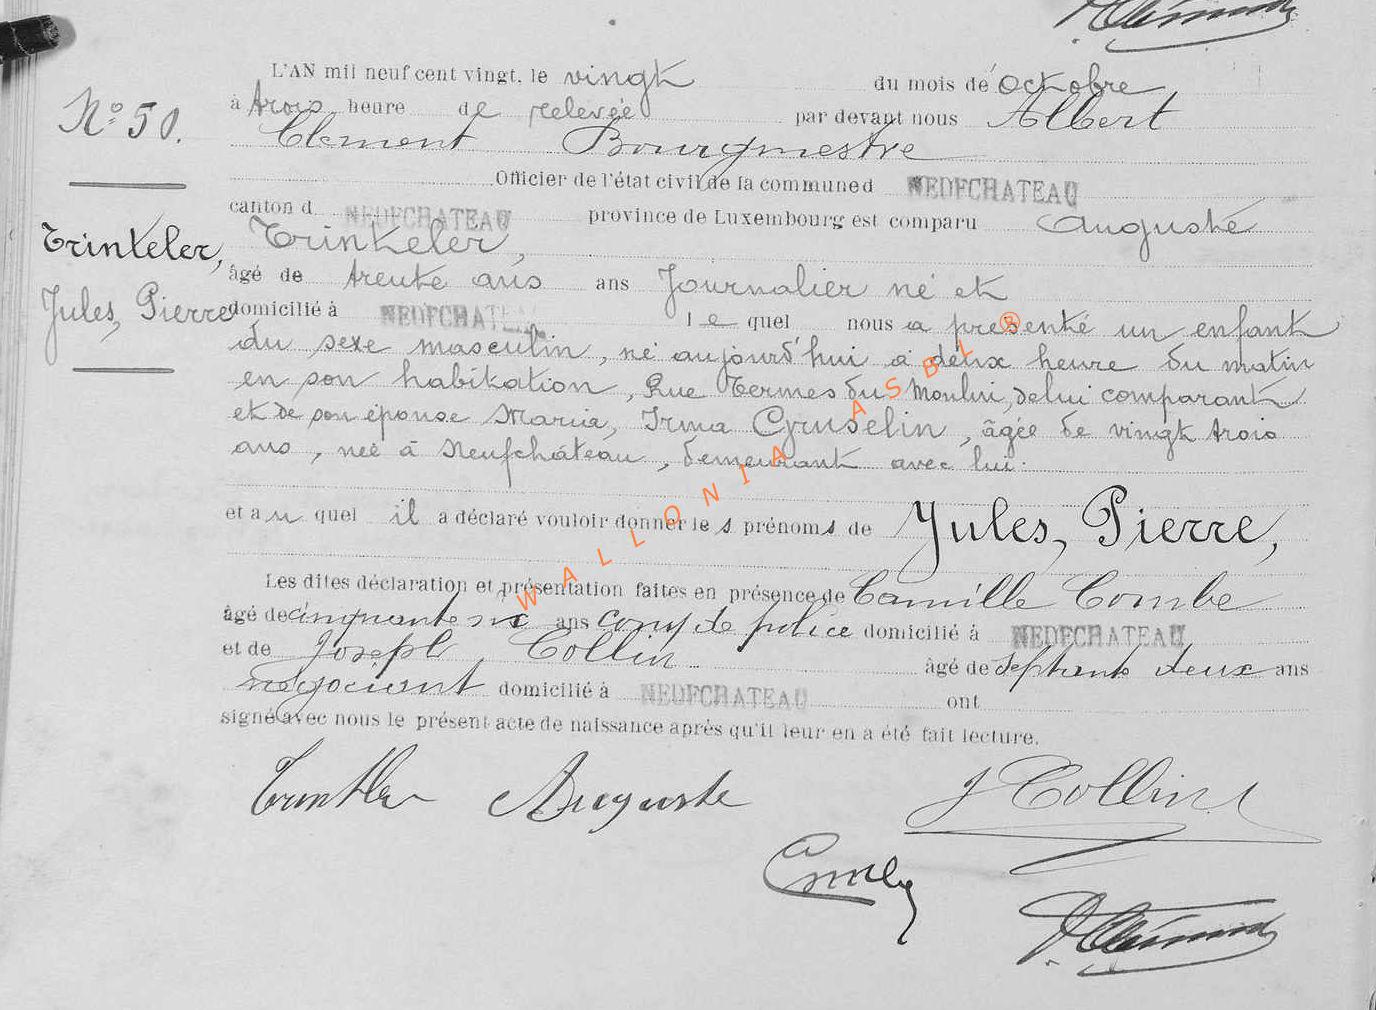 L'AN mil neuf cent vingt, le vingt du mois de octobre
à trois heure de relevée par devant nous Albert
Nº 50.
Clement Bourgmestre
Officier de l'état civil de la commune d NEUFCHATEAU
canton d NEUFCHATEAU province de Luxembourg est comparu Auguste
Trinteler, Trinkeler,
âgé de trente ans ans Journalier né et
Jules, Pierre domicilié à NEUFCHATEAU le quel nous a presenté un enfant
du sexe masculin, né aujourd'hui à deux heure du matin
en son habitation, Rue Termes du Moulin, de lui comparant
et de son épouse Maria, Irma Gruselin, âgée de vingt trois
ans, née à Neufchâteau, demeurant avec lui.
et au quel il a déclaré vouloir donner les prénoms de Jules, Pierre,
Les dites déclaration et présentation faites en présence de Camille Combe
âgé de cinquante six ans de police domicilié à NEUFCHATEAU
et de Joseph Collin âgé de septante deux ans
négociant domicilié à NEUFCHATEAU ont
signé avec nous le présent acte de naissance après qu'il leur en a été fait lecture.
Auguste J Collin
WALLONIA ASBL ®